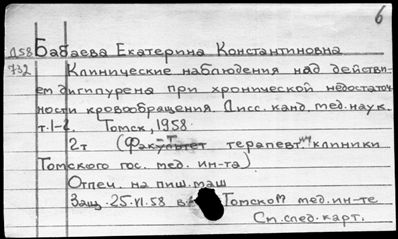 6
Д58 Бабаева Екатерина Константиновна
732 Клинические наблюдения над действи-
ем дигипурена при хронической недостаточ-
ности кровообращения. Дисс. канд. мед. наук.
т.1-2. Томск, 1958.
2т (Факультет терапевт клиники
Томского гос. мед. ин-та)
Отпеч. на пиш. маш
Защ. 25.VI.58 в Томском мед. ин-те
См. след. карт.